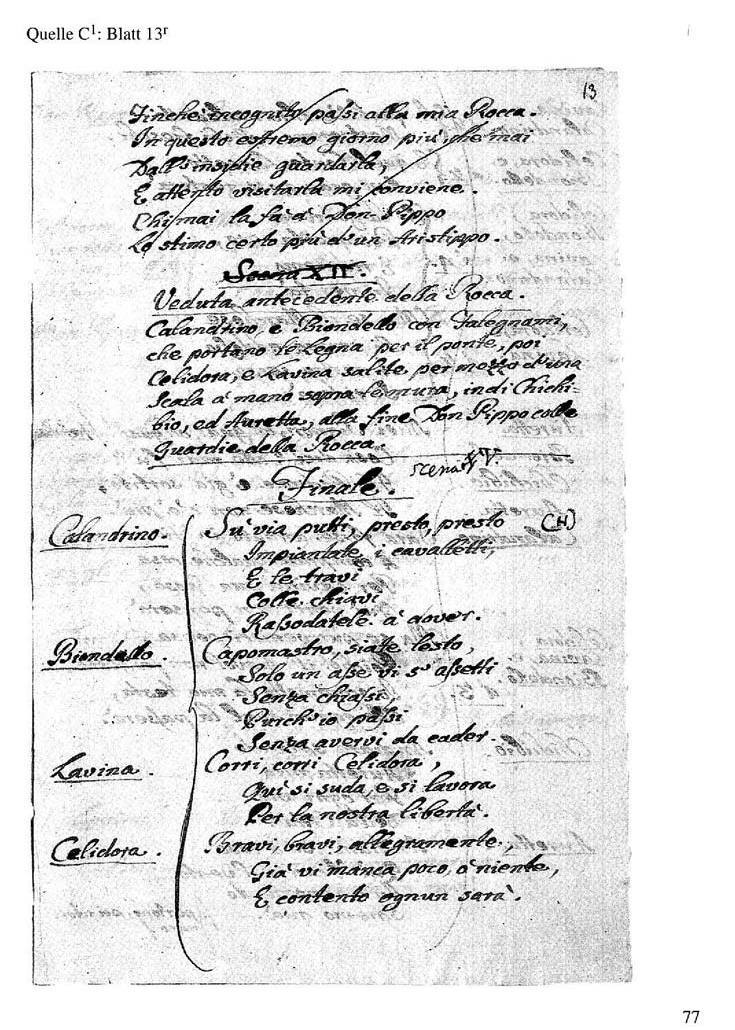 Quelle C1: Blatt 13r
13
Finche incognito passi alla mia Rocca.
In questo estremo giorno più, che mai
Dall'insidie guardarla,
E attento visitarla mi conviene.
Chi mai la fa à Don Pippo
Lo stimo certo più d'un Aristippo.
Scena XII.
Veduta antecedente della Rocca.
Calandrino, e Biondello con Falegnami,
che portano le Legna per il ponte, poi
Celidora, e Lavina salite per mezzo d'una
Scala à mano sopra le mura, indi Chichi-
bio, ed Auretta, alla fine Don Pippo colle
Guardie della Rocca.
Finale. scena XV.
Calandrino. Sù via putti, presto, presto (H)
Impiantate, i cavalletti,
E le travi
Colle chiavi
Rassodatele à dover.
Biondello. Capomastro, siate lesto,
Solo un asse vi s'assetti
Senza chiassi,
Purch'io passi
Senza avervi da cader.
Lavina. Corri, corri Celidora,
Quì si suda, e si lavora
Per la nostra libertà.
Celidora. Bravi, bravi, allegramente,
Già vi manca poco, ò niente,
E contento ognun sarà.
77